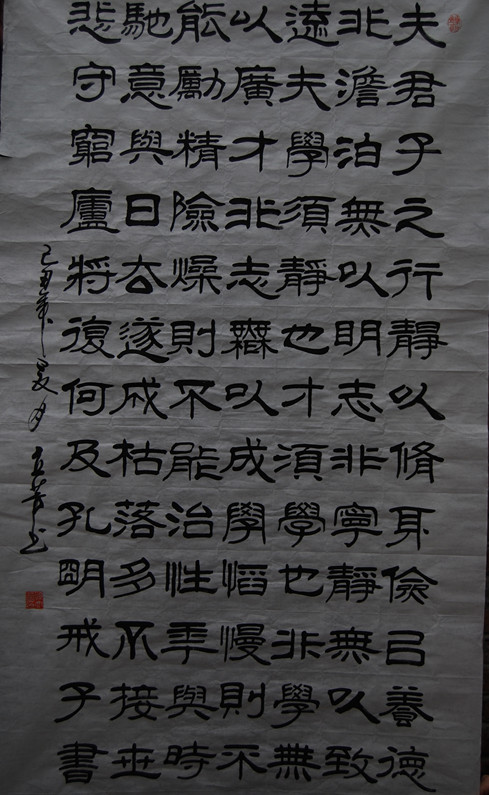 夫君子之行靜以脩身儉㠯養德
非澹泊無以明志非寧靜無以致
遠夫學須靜也才須學也非學無
以廣才非志無以成學慆慢則不
能勵精險燥則不能治性年與時
馳意與日去遂成枯落多不接世
悲守窮廬將復何及孔明戒子書
己丑年夏月